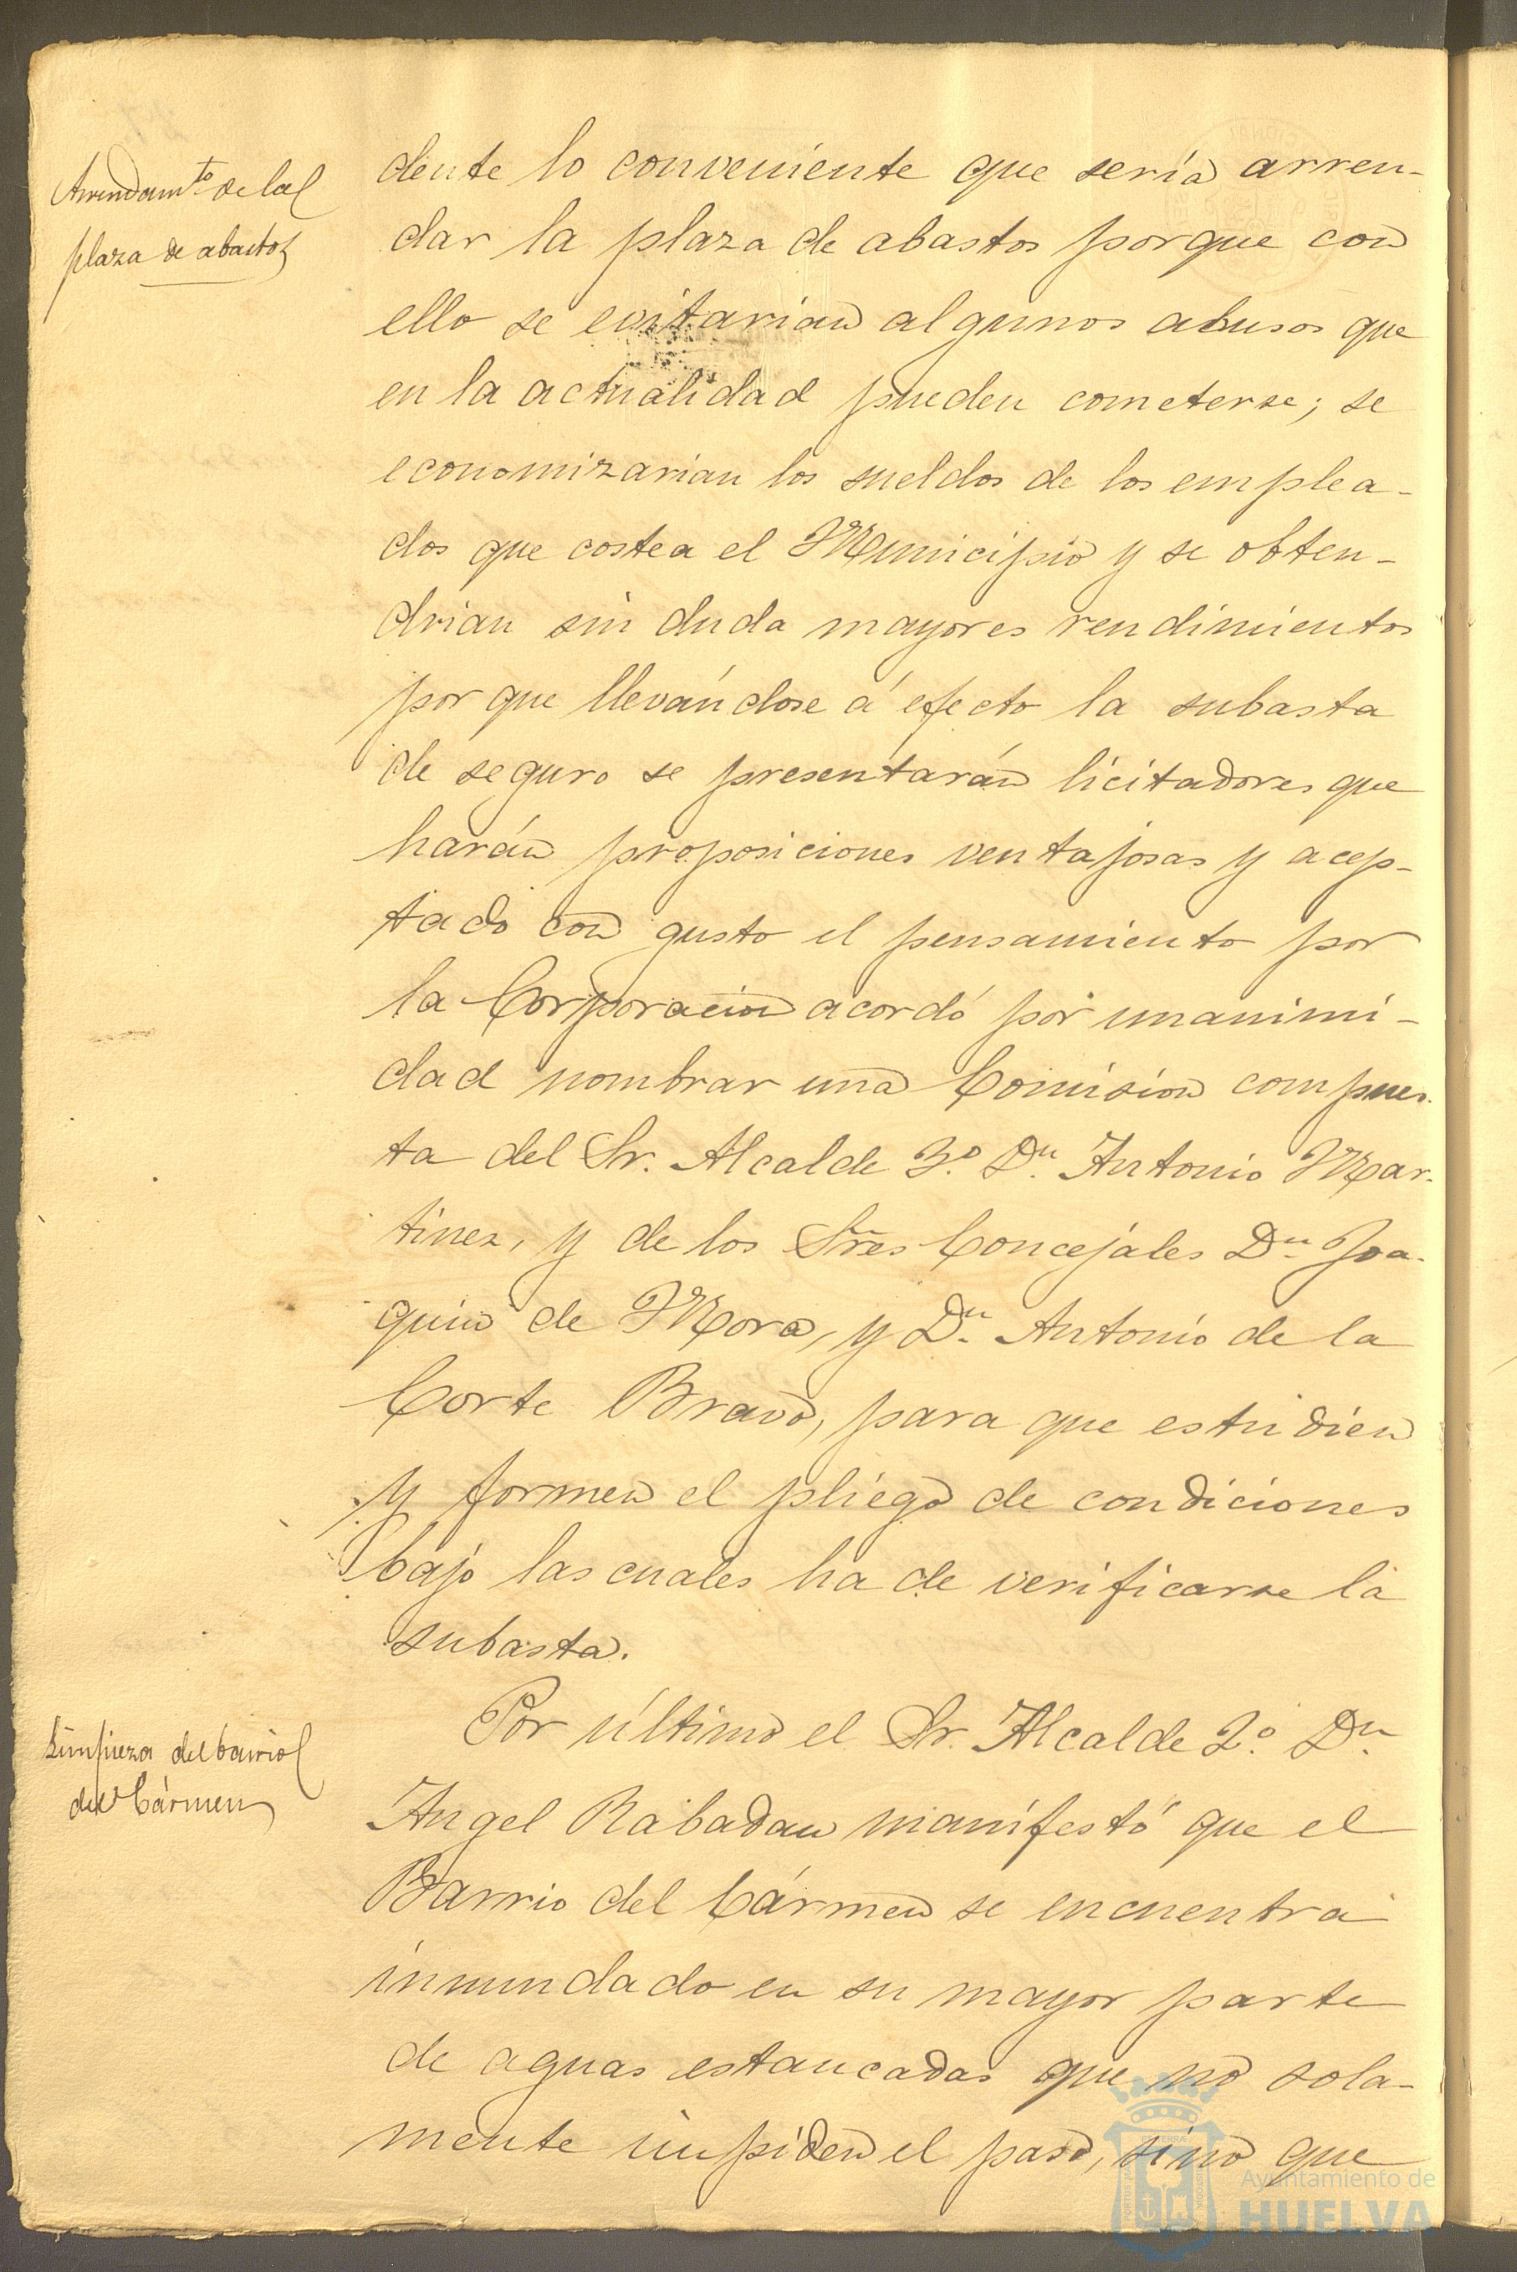 Arrendam.to de la
plaza de abastos
dente lo conveniente que sería arren-
dar la plaza de abastos porque con
ello se evitarian algunos abusos que
en la actualidad pueden cometerse; se
economizarian los sueldos de los emplea-
dos que costea el Municipio y se obten-
drian sin duda mayores rendimientos
por que llevándose á efecto la subasta
de seguro se presentarán licitadores que
harán proposiciones ventajosas y acep-
tado con gusto el pensamiento por
la Corporacion acordó por unanimi-
dad nombrar una Comision compues-
ta del Sr. Alcalde 3.º D.n Antonio Mar-
tinez, y de los Sres Concejales D.n Joa-
quin de Mora, y D.n Antonio de la
Corte Bravo, para que estudien
y formen el pliego de condiciones
bajo las cuales ha de verificarse la
subasta.
Limpieza del barrio
del Cármen
Por último el Sr. Alcalde 2.º D.n
Angel Rabadan manifestó que el
Barrio del Cármen se encuentra
inundado en su mayor parte
de aguas estancadas que no sola-
mente impiden el paso, sino que
Ayuntamiento de
HUELVA